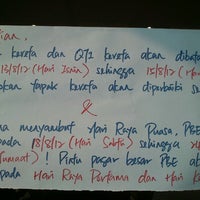 tian,
kereta dan QT2 kereta akan dibata
13/8/12 (Hari Isnin) sehingga 15/8/12 (Ha
akan tapak kereta akan diperbaiki se
&
na menyambut Hari Raya Puasa, PBE
pada 18/8/12 (Hari Sabtu) sehingga
Jumaat) ! Pintu pasar besar PBE ak
pada Hari Raya Pertama dan Hari Ke